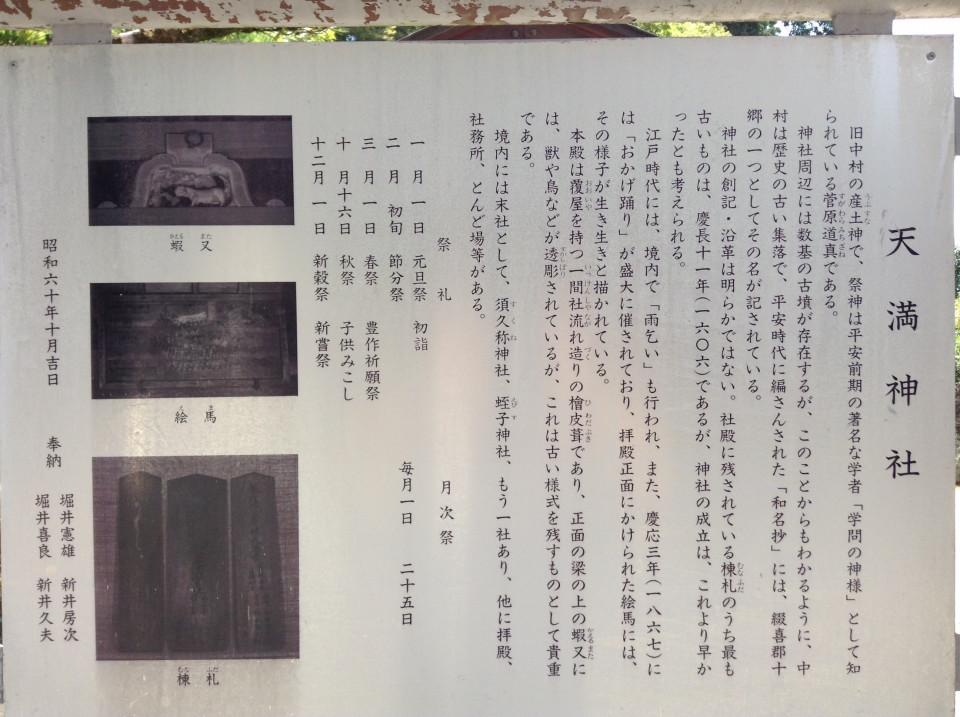 天満神社
旧中村の産土神で、祭神は平安前期の著名な学者「学問の神様」として知
られている菅原道真である。
神社周辺には数基の古墳が存在するが、このことからもわかるように、中
村は歴史の古い集落で、平安時代に編さんされた「和名抄」には、綴喜郡十
郷の一つとしてその名が記されている。
神社の創記・沿革は明らかではない。社殿に残されている棟札のうち最も
古いものは、慶長十一年(一六〇六)であるが、神社の成立は、これより早か
ったとも考えられる。
江戸時代には、境内で「雨乞い」も行われ、また、慶応三年(一八六七)に
は「おかげ踊り」が盛大に催されており、拝殿正面にかけられた絵馬には、
その様子が生き生きと描かれている。
本殿は覆屋を持つ一間社流れ造りの檜皮葺であり、正面の梁の上の蝦又に
は、獣や鳥などが透彫されているが、これは古い様式を残すものとして貴重
である。
境内には末社として、須久称神社、蛭子神社、もう一社あり、他に拝殿、
社務所、とんど場等がある。
祭礼 月次祭
一月一日 元旦祭 初詣 毎月一日 二十五日
二月初旬 節分祭
三月一日 春祭 豊作祈願祭
十月十六日 秋祭 子供みこし
十二月一日 新穀祭 新嘗祭
蝦又
絵馬
棟札
昭和六十年十月吉日 奉納 堀井憲雄 新井房次
堀井喜良 新井久夫